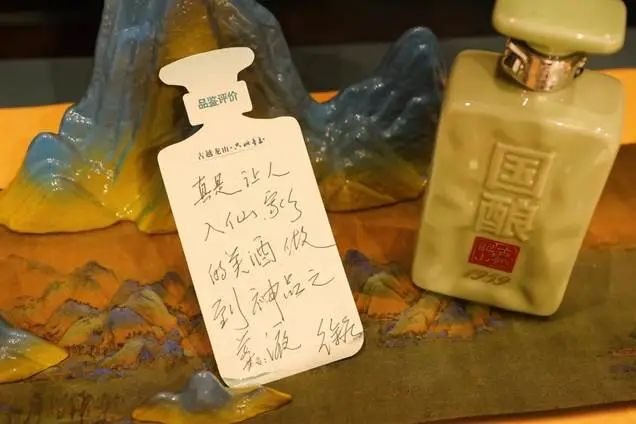 品鉴评价
古越龙山·只此青玉
真是让人
入仙家
的美酒做
到神品之
液
国
酿
1959